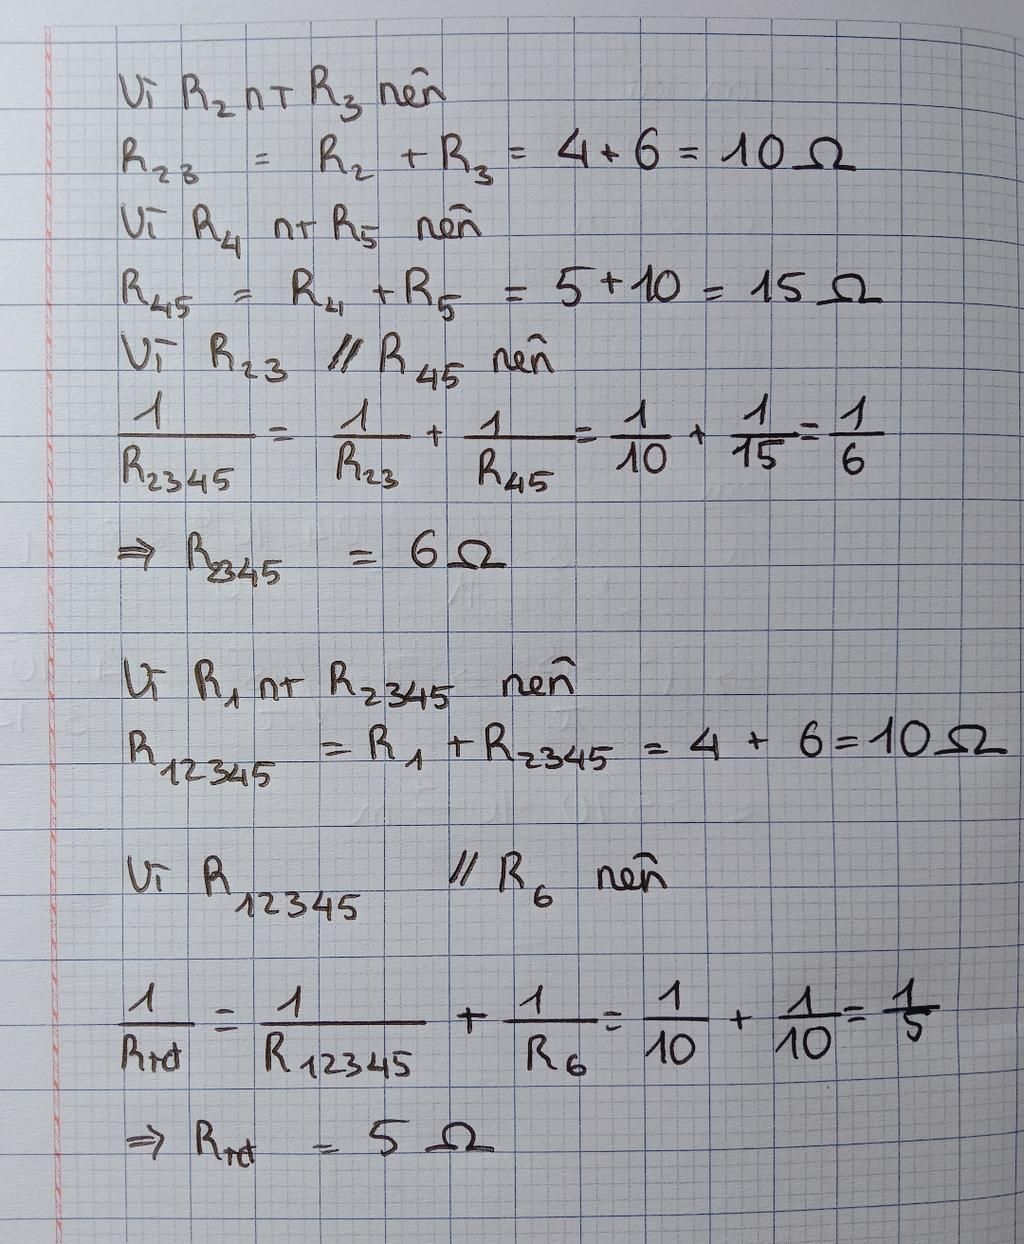 Vì R₂ nt R₃ nên
R₂₃ = R₂ + R₃ = 4 + 6 = 10 Ω
Vì R₄ nt R₅ nên
R₄₅ = R₄ + R₅ = 5 + 10 = 15 Ω
Vì R₂₃ // R₄₅ nên
1/R₂₃₄₅ = 1/R₂₃ + 1/R₄₅ = 1/10 + 1/15 = 1/6
⇒ R₂₃₄₅ = 6 Ω
Vì R₁ nt R₂₃₄₅ nên
R₁₂₃₄₅ = R₁ + R₂₃₄₅ = 4 + 6 = 10 Ω
Vì R₁₂₃₄₅ // R₆ nên
1/Rtđ = 1/R₁₂₃₄₅ + 1/R₆ = 1/10 + 1/10 = 1/5
⇒ Rtđ = 5 Ω